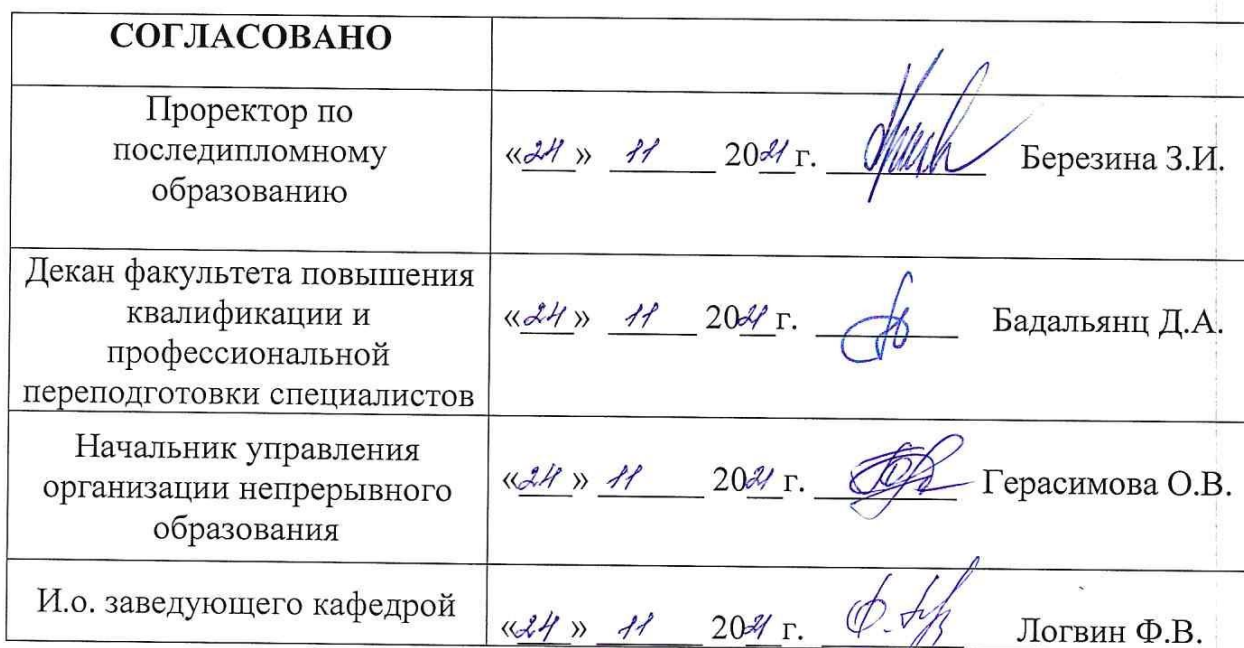 СОГЛАСОВАНО
Проректор по
последипломному
образованию
«24» 11 2021 г. Березина З.И.
Декан факультета повышения
квалификации и
профессиональной
переподготовки специалистов
«24» 11 2021 г. Бадальянц Д.А.
Начальник управления
организации непрерывного
образования
«24» 11 2021 г. Герасимова О.В.
И.о. заведующего кафедрой
«24» 11 2021 г. Логвин Ф.В.